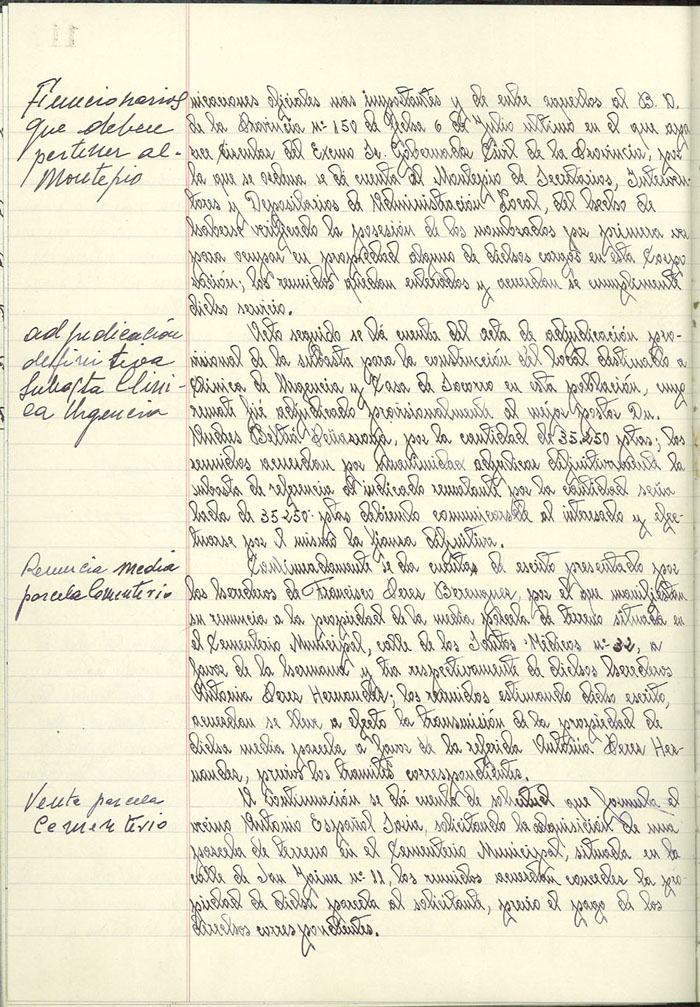 Funcionarios
que deben
pertener al-
Montepio
nicaciones oficiales mas importantes y de entre aquellos al B. O.
de la Provincia nº 150 de fecha 6 de Julio ultimo en el que apa
rece circular del Excmo Sr. Gobernador Civil de la Provincia, por
la que se ordena se dé cuenta al Montepio de Secretarios, Interven-
tores y Depositarios de Administración Local, del hecho de
haberse verificado la posesión de los nombrados por primera vez
para ocupar en propiedad alguno de dichos cargos en esta Corpo
ración; los reunidos quedan enterados y acuerdan se cumplimente
dicho servicio.
adjudicación
definitiva
Subasta Clini-
ca Urgencia
Acto seguido se dá cuenta del acta de adjudicación pro-
visional de la subasta para la construcción del local destinado a
Clinica de Urgencia y Casa de Socorro en esta población, cuyo
remate fué adjudicado provisionalmente al mejor postor Dn.
Andres Beltrá Peñataro, por la cantidad de 35.250 ptas; los
reunidos acuerdan por unanimidad adjudicar definitivamente la
subasta de referencia al indicado rematante por la cantidad seña
lada de 35250 ptas debiendo comunicarsele al interesado y efec-
tuarse por el mismo la fianza definitiva.
Renuncia media
parcela Cementerio
Continuadamente se da cuenta de escrito presentado por
los herederos de Francisco Perez Berenguer, por el que manifiestan
su renuncia a la propiedad de la media parcela de terreno situada en
el Cementerio Municipal, calle de los Santos Médicos nº 32, a
favor de la hermana y tia respectivamente de dichos herederos
Antonia Perez Hernandez; los reunidos estimando dicho escrito,
acuerdan se lleve a efecto la transmisión de la propiedad de
dicha media parcela a favor de la referida Antonia Perez Her-
nandez, previos los tramites correspondientes.
Venta parcela
Cementerio
A continuación se dá cuenta de solicitud que formula el
vecino Antonio Español Soria, solicitando la adquisición de una
parcela de terreno en el Cementerio Municipal, situada en la
calle de San Jaime nº 11, los reunidos acuerdan conceder la pro-
piedad de dicha parcela al solicitante, previo el pago de los
derechos correspondientes.